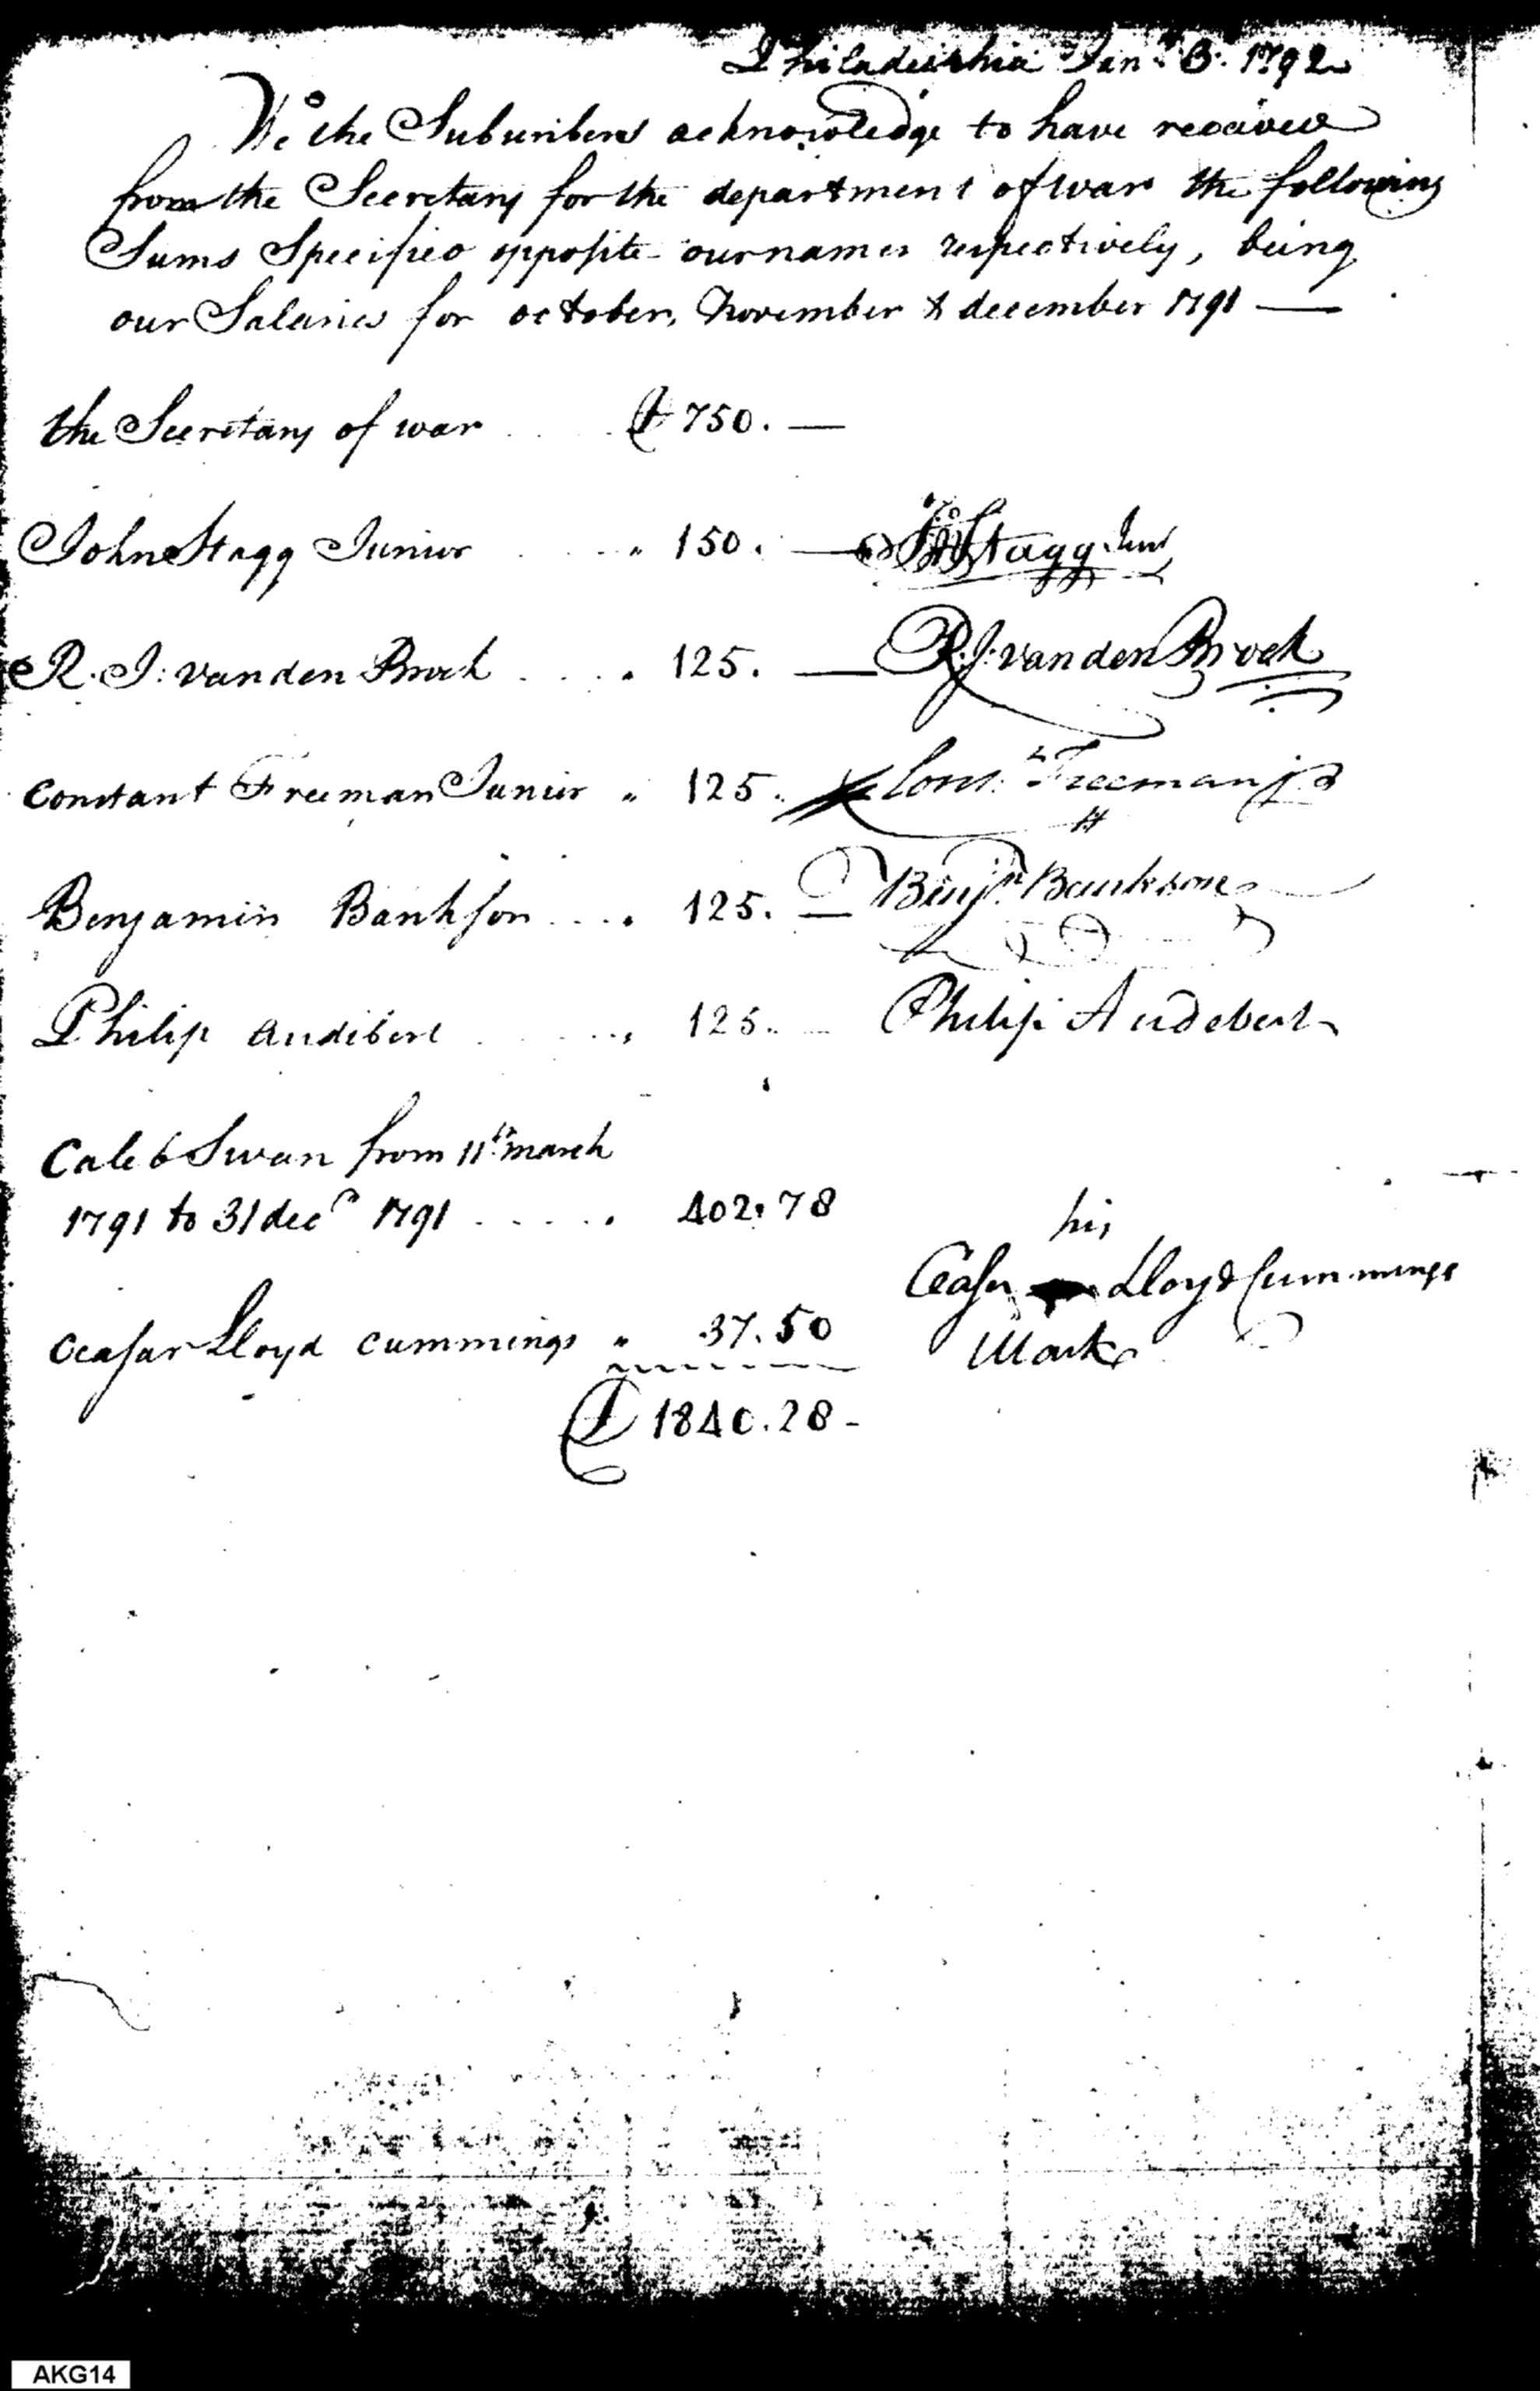 Philadelphia Jany. 3. 1792
We the Subscribers acknowledge to have received
from the Secretary for the department of war the following
Sums Specified opposite our names respectively, being
our Salaries for october, November & december 1791 —
the Secretary of war .... D 750. —
John Stagg Junior .... " 150. — Jno Stagg Junr
R. J: vanden Broek .... " 125. — R. J: vanden Broek
Constant Freeman Junior " 125. Const. Freeman jr
Benjamin Bankson .... " 125. — Benjn. Bankson
Philip Audibert .... " 125. — Philip Audebert
Caleb Swan from 11th march
1791 to 31 decr 1791 ..... 402.78
his
Ceasar Lloyd Cummings
Ceasar Lloyd Cummings " 37.50
Mark
D 1840.28 -
AKG14